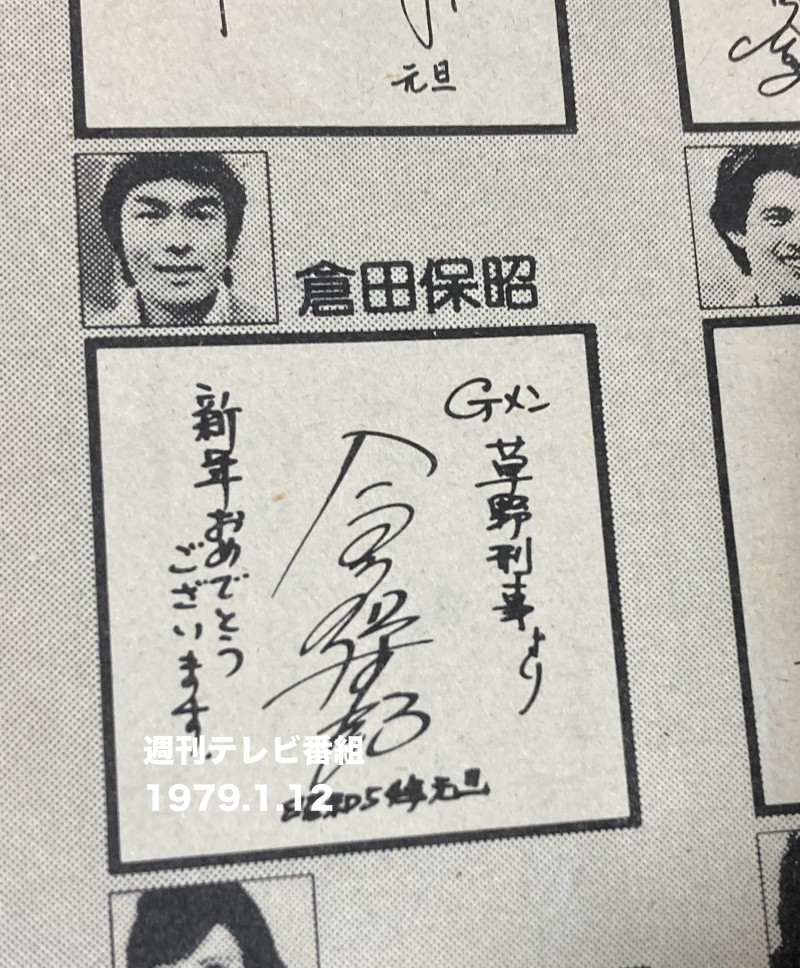 元旦
倉田保昭
Gメン
草野刑事より
倉田保昭
新年おめでとう
ございます
元旦
週刊テレビ番組
1979.1.12